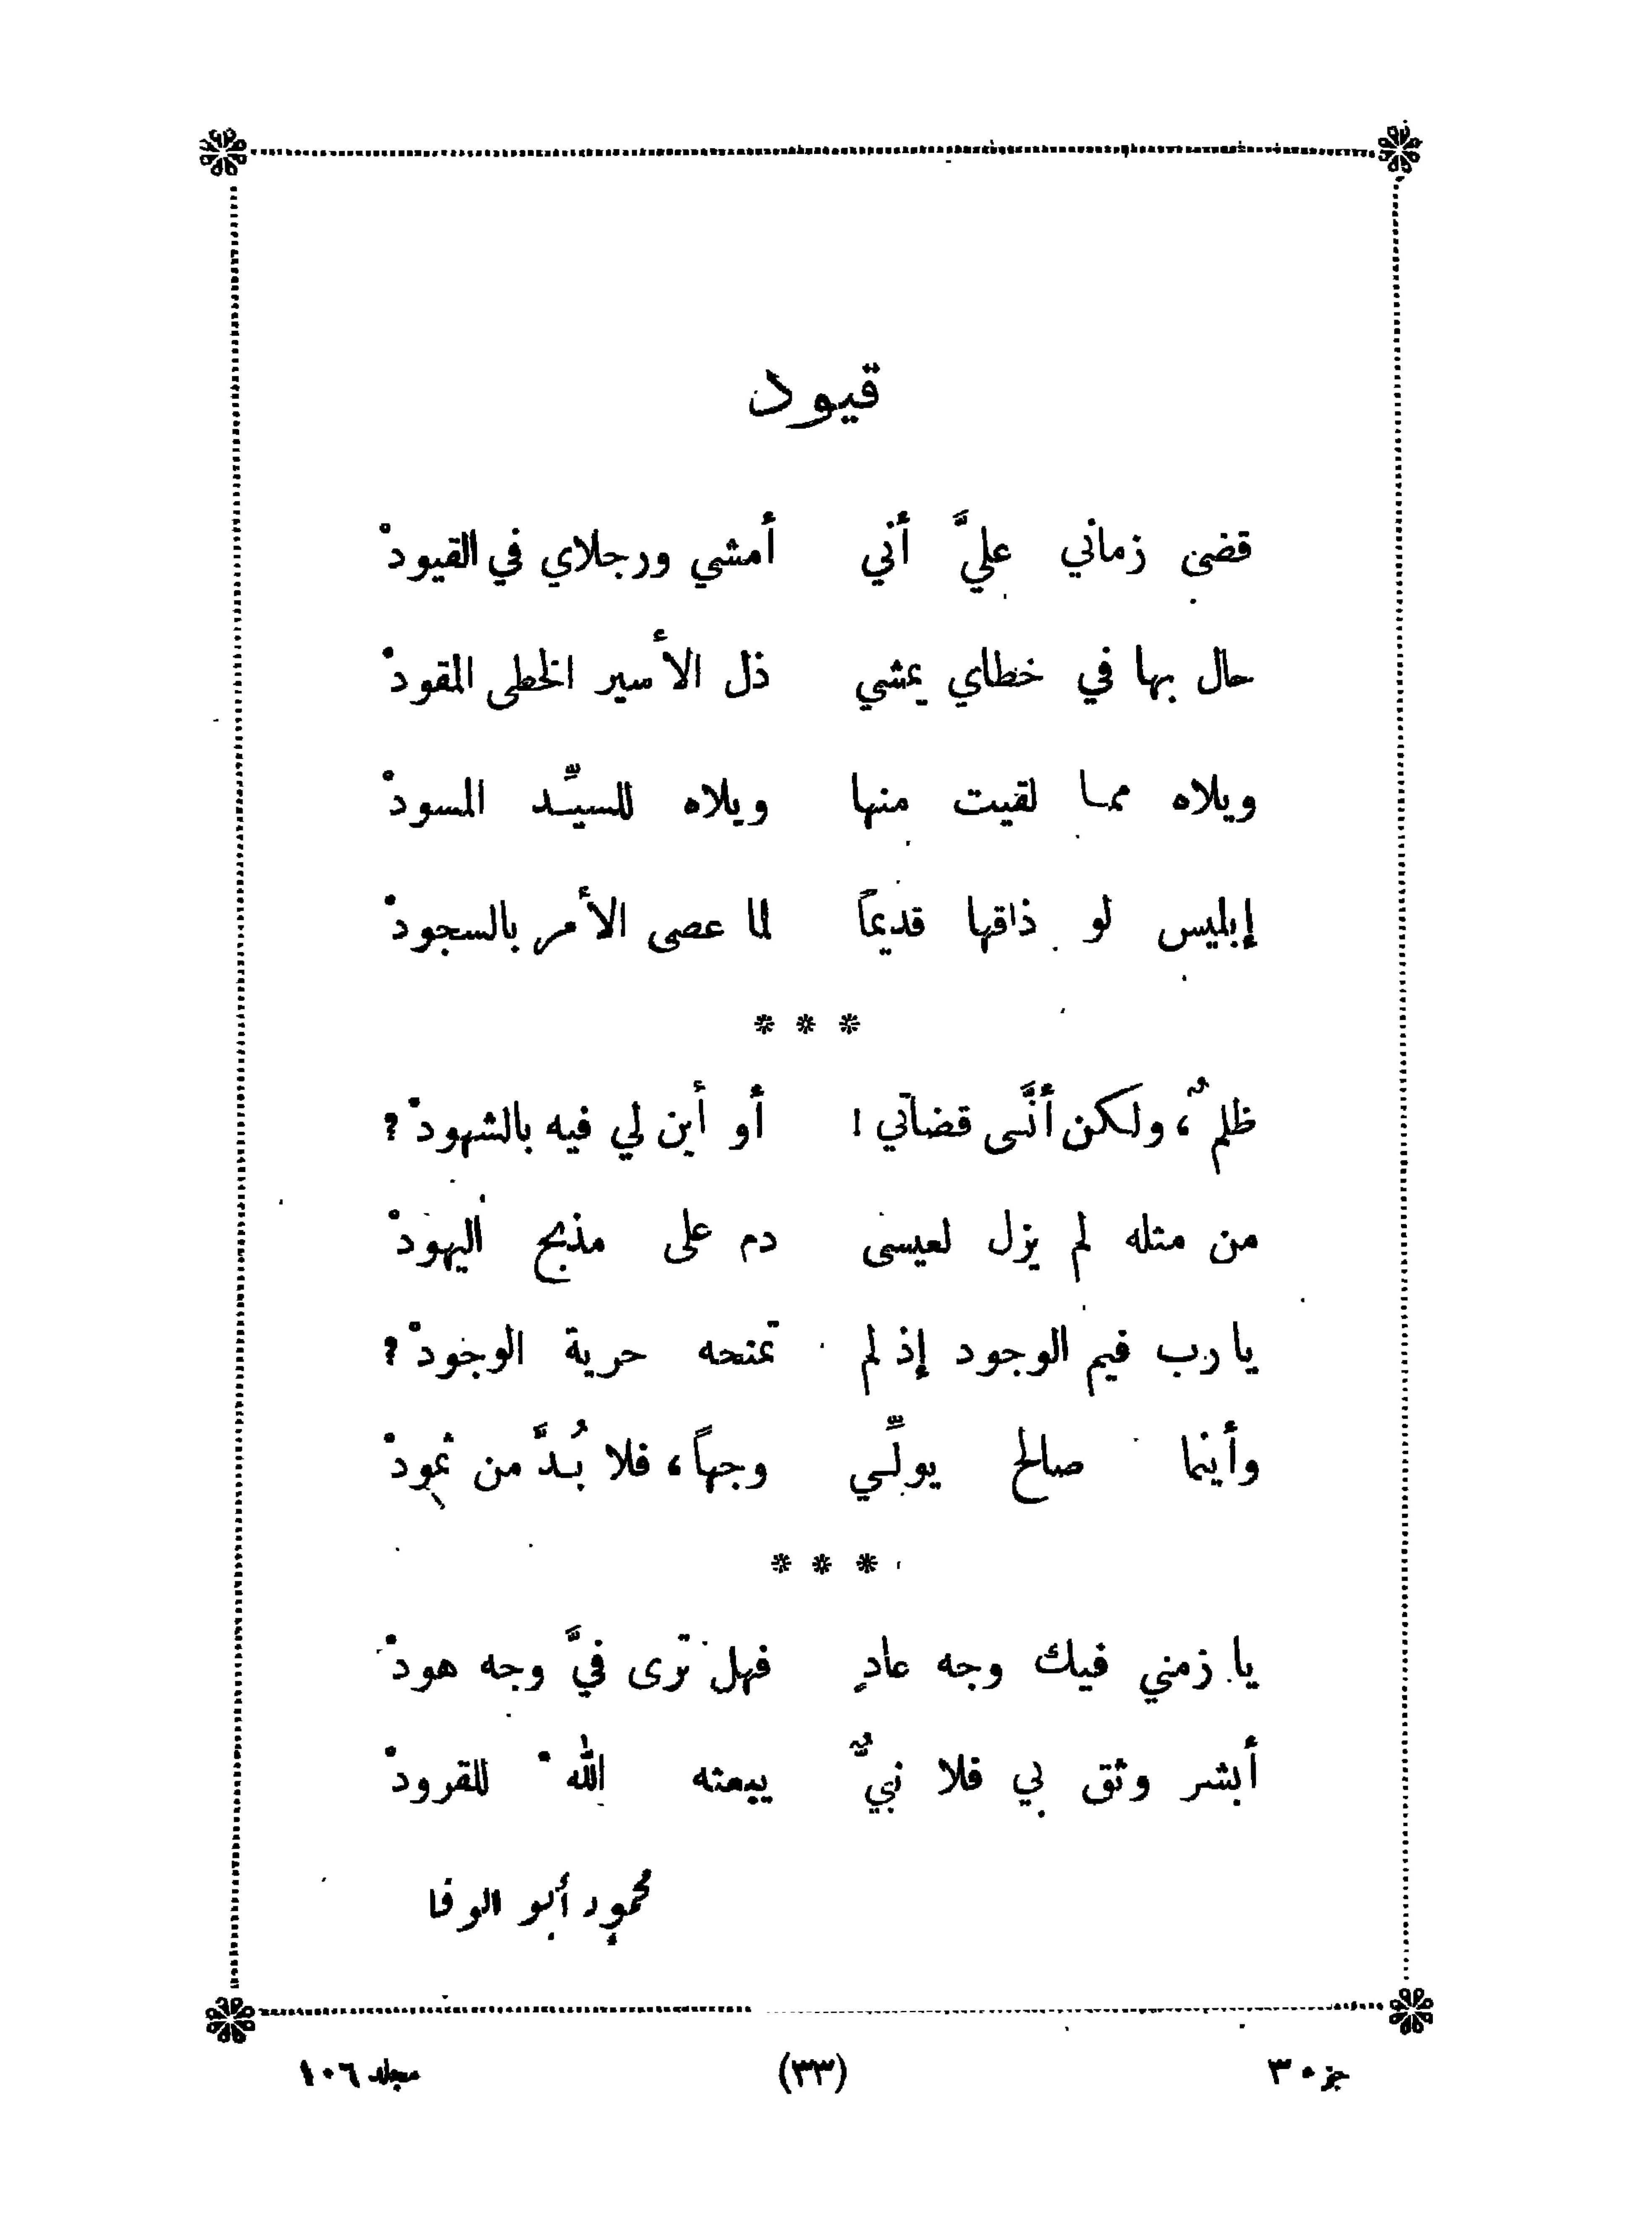 قيود
قضى زماني عليَّ أني أمشي ورجلاي في القيودْ
حال بها في خطاي يمشي ذل الأسير الخطى المقودْ
ويلاه مما لقيت منها ويلاه للسيِّد المسودْ
إبليس لو ذاقها قديماً لما عصى الأمر بالسجودْ
* * *
ظلمٌ، ولكن أنَّى قضاتي ! أو أين لي فيه بالشهودْ ؟
من مثله لم يزل لعيسى دم على مذبح اليهودْ
يا رب فيم الوجود إذ لم تمنحه حرية الوجودْ ؟
وأينما صالح يولِّي وجهاً، فلا بُدَّ من ثمودْ
* * *
يا زمني فيك وجه عادٍ فهل ترى فيَّ وجه هودْ
أبشر وثق بي فلا نبيٌّ يبعثه الله للقرودْ
محمود أبو الوفا
جزء ٣ (٣٣) مجلد ١٠٦